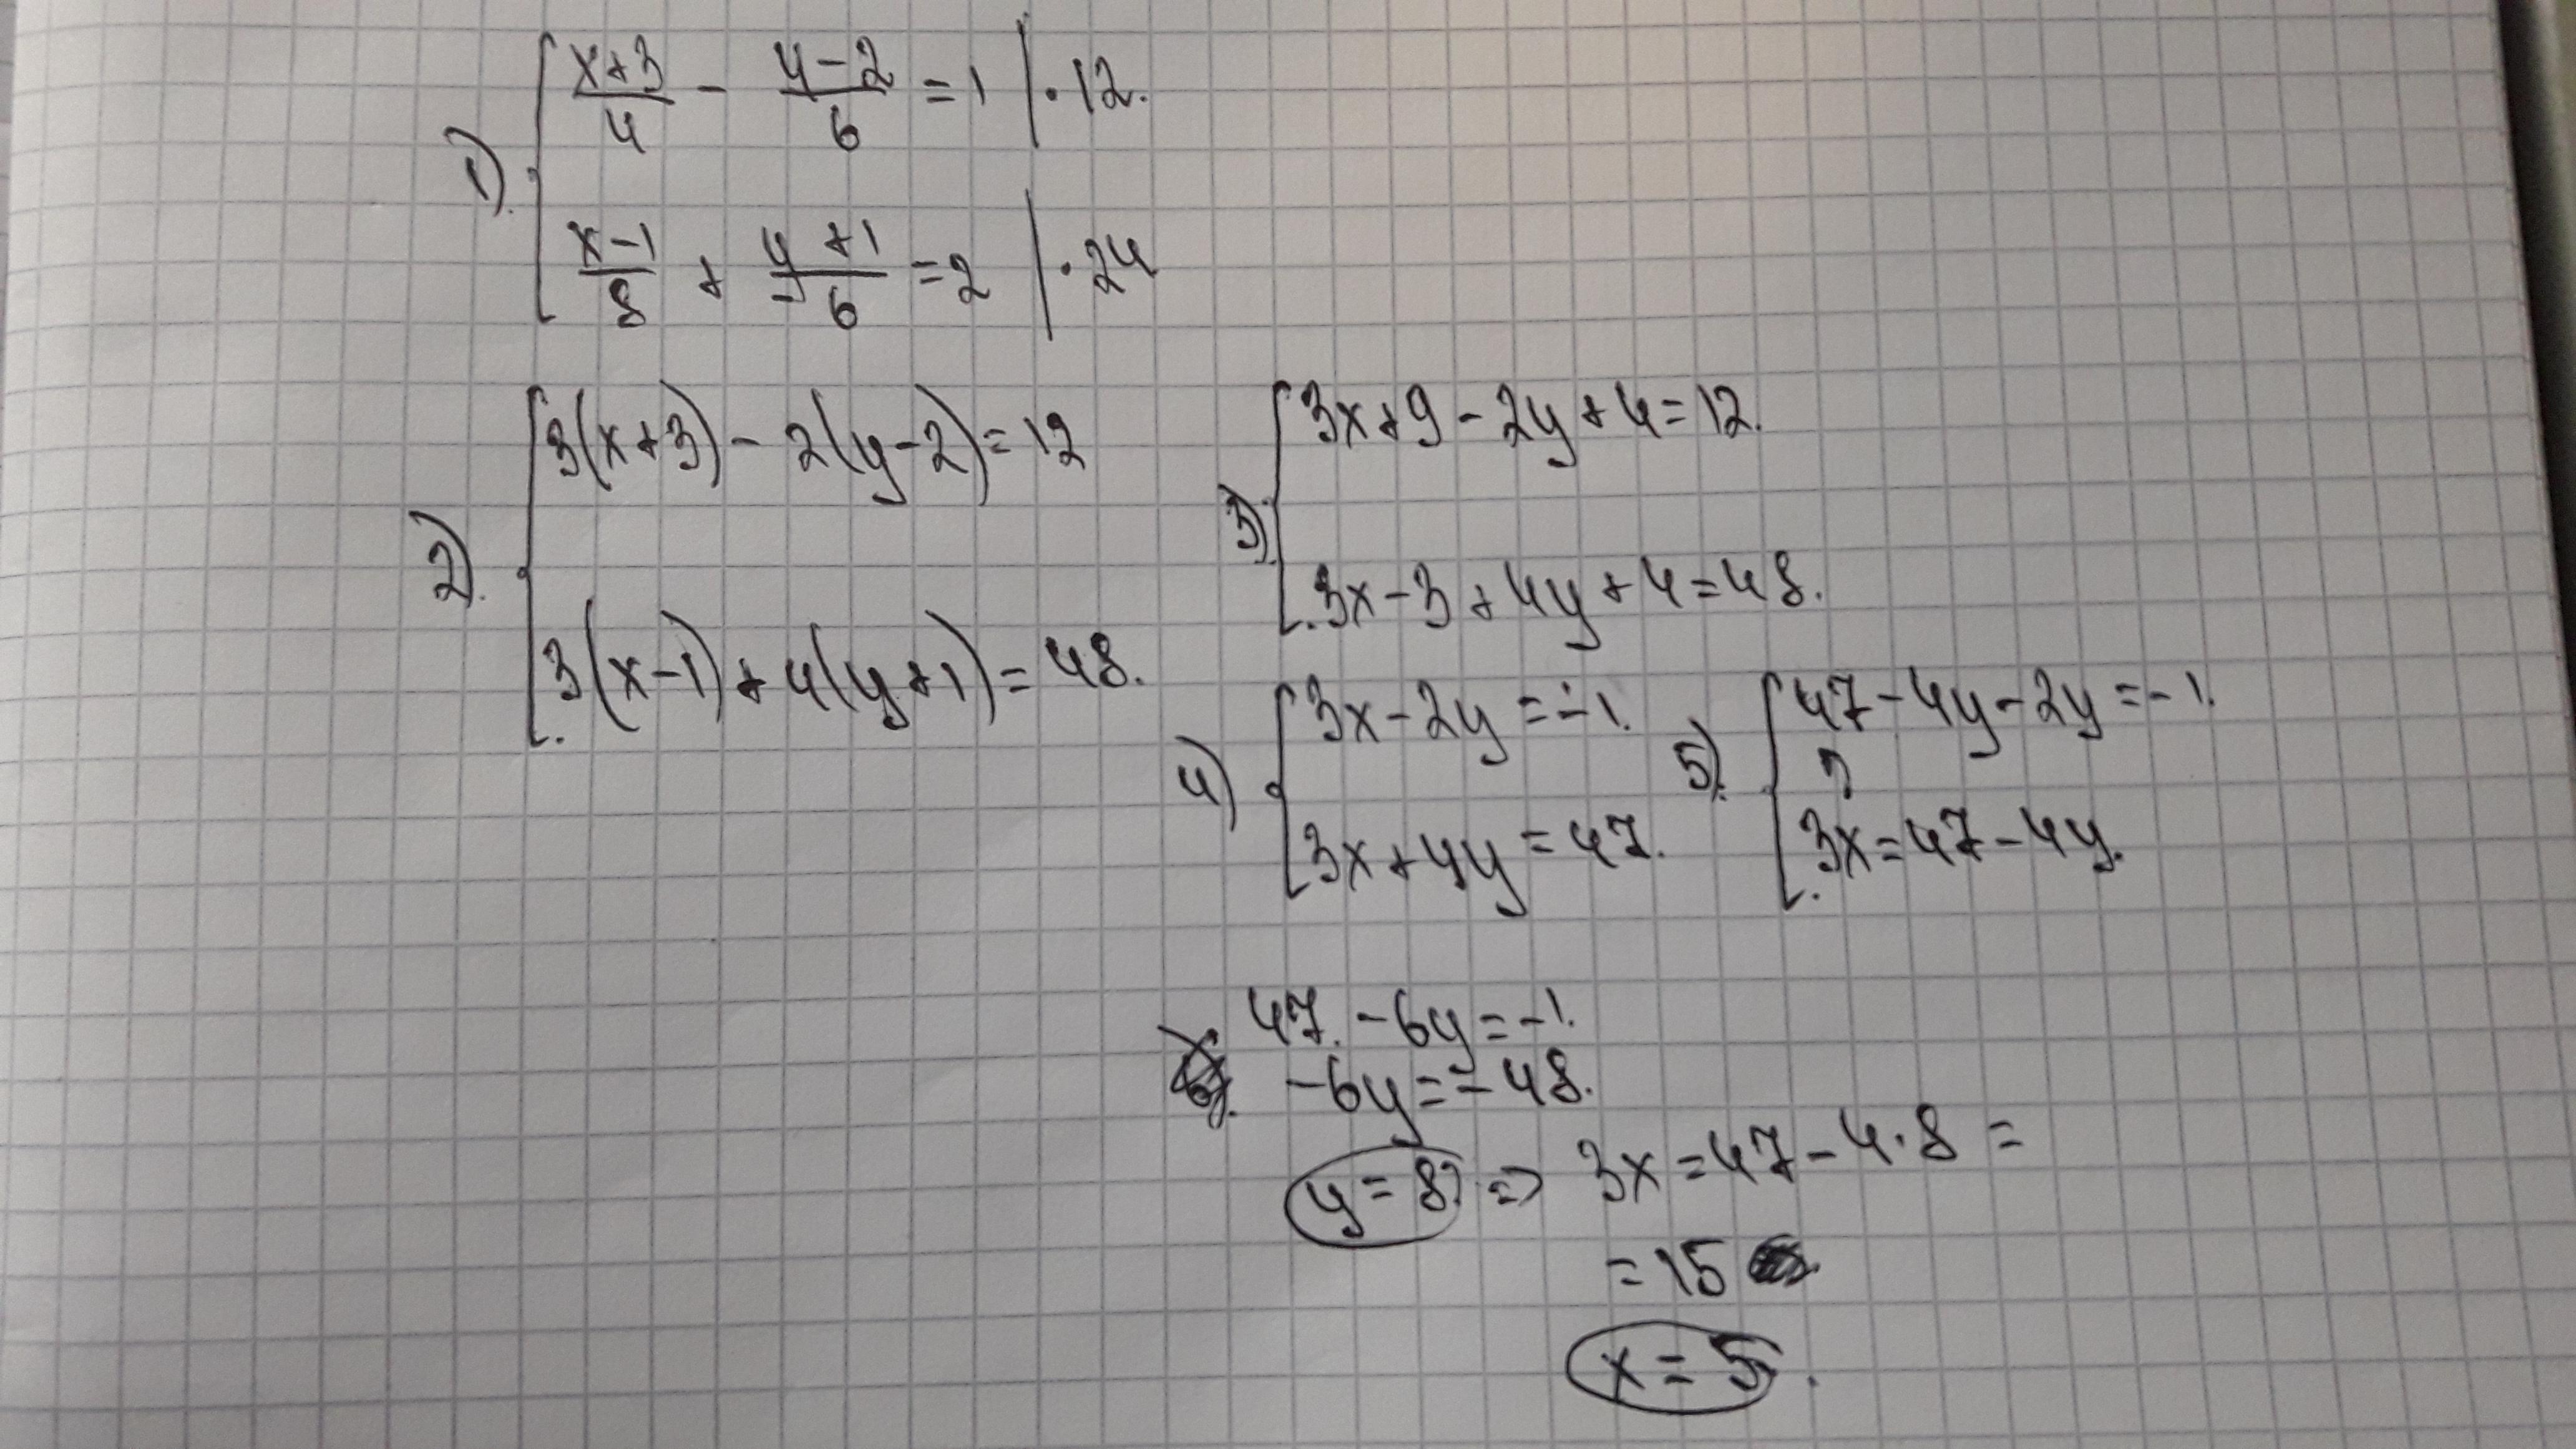 1) { (x+3)/4 - (y-2)/6 = 1 | ·12.
(x-1)/8 + (y+1)/6 = 2 | ·24
2) { 3(x+3) - 2(y-2) = 12
3(x-1) + 4(y+1) = 48.
3) { 3x+9-2y+4=12.
3x-3+4y+4=48.
4) { 3x-2y=-1.
3x+4y=47.
5) { 47-4y-2y=-1.
3x=47-4y.
47-6y=-1.
-6y=-48.
y=8 => 3x=47-4·8=
=15
x=5.